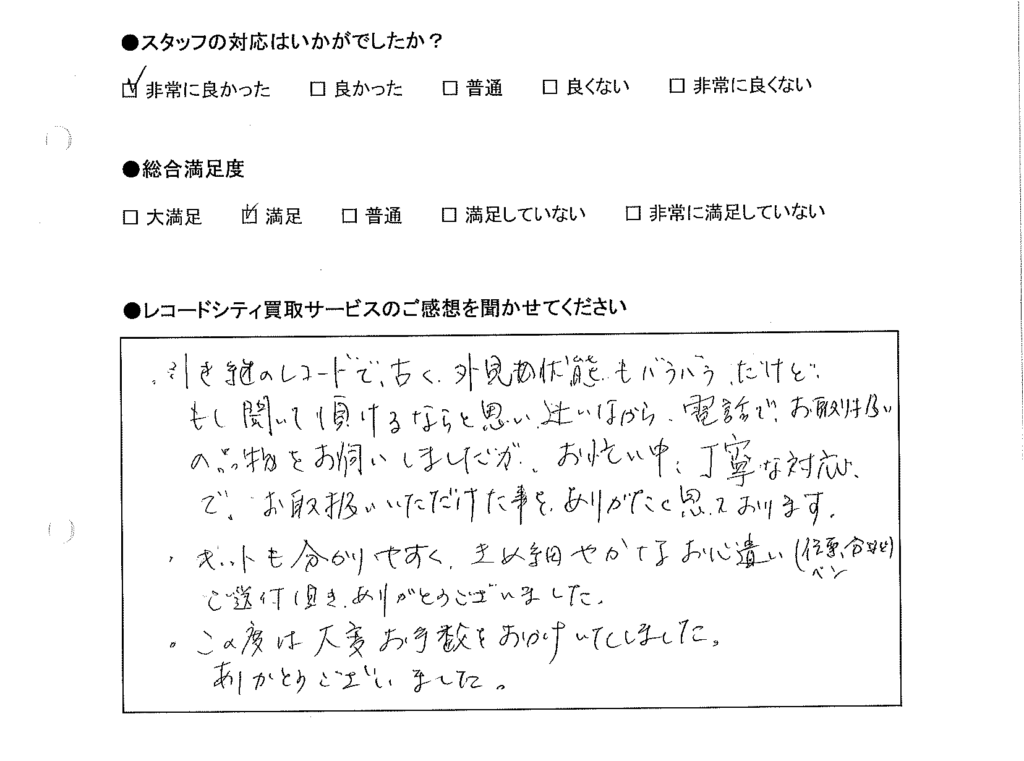 ●スタッフの対応はいかがでしたか？
☑ 非常に良かった □ 良かった □ 普通 □ 良くない □ 非常に良くない
●総合満足度
□ 大満足 ☑ 満足 □ 普通 □ 満足していない □ 非常に満足していない
●レコードシティ買取サービスのご感想を聞かせてください
・引き継のレコードで、古く、外見の状態もバラバラ、だけど、
もし聞いて頂けるならと思い、迷いながら、電話で、お取り扱い
の品物をお伺いしましたが、お忙い中、丁寧な対応
で、お取扱いいただけた事を、ありがたく思っております。
・キットも分かりやすく、きめ細やかなお心遣い(伝票、
ペン
ご送付頂き、ありがとうございました。
・この度は大変お手数をおかけいたしました。
ありがとうございました。